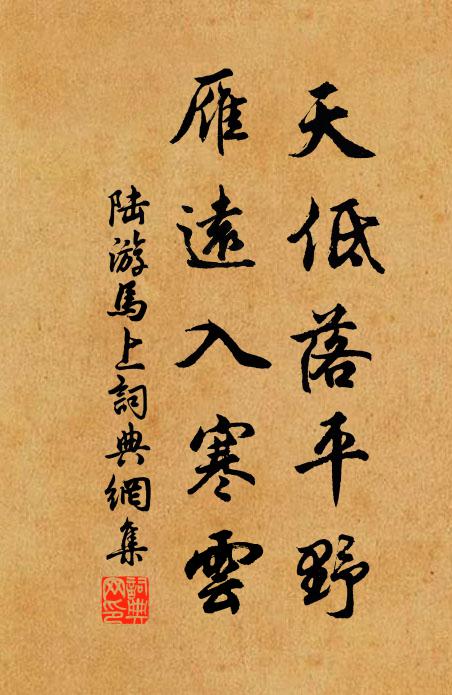 天低落平野
雁遠入寒雲
陆游馬上詞典網集
詞典
网印